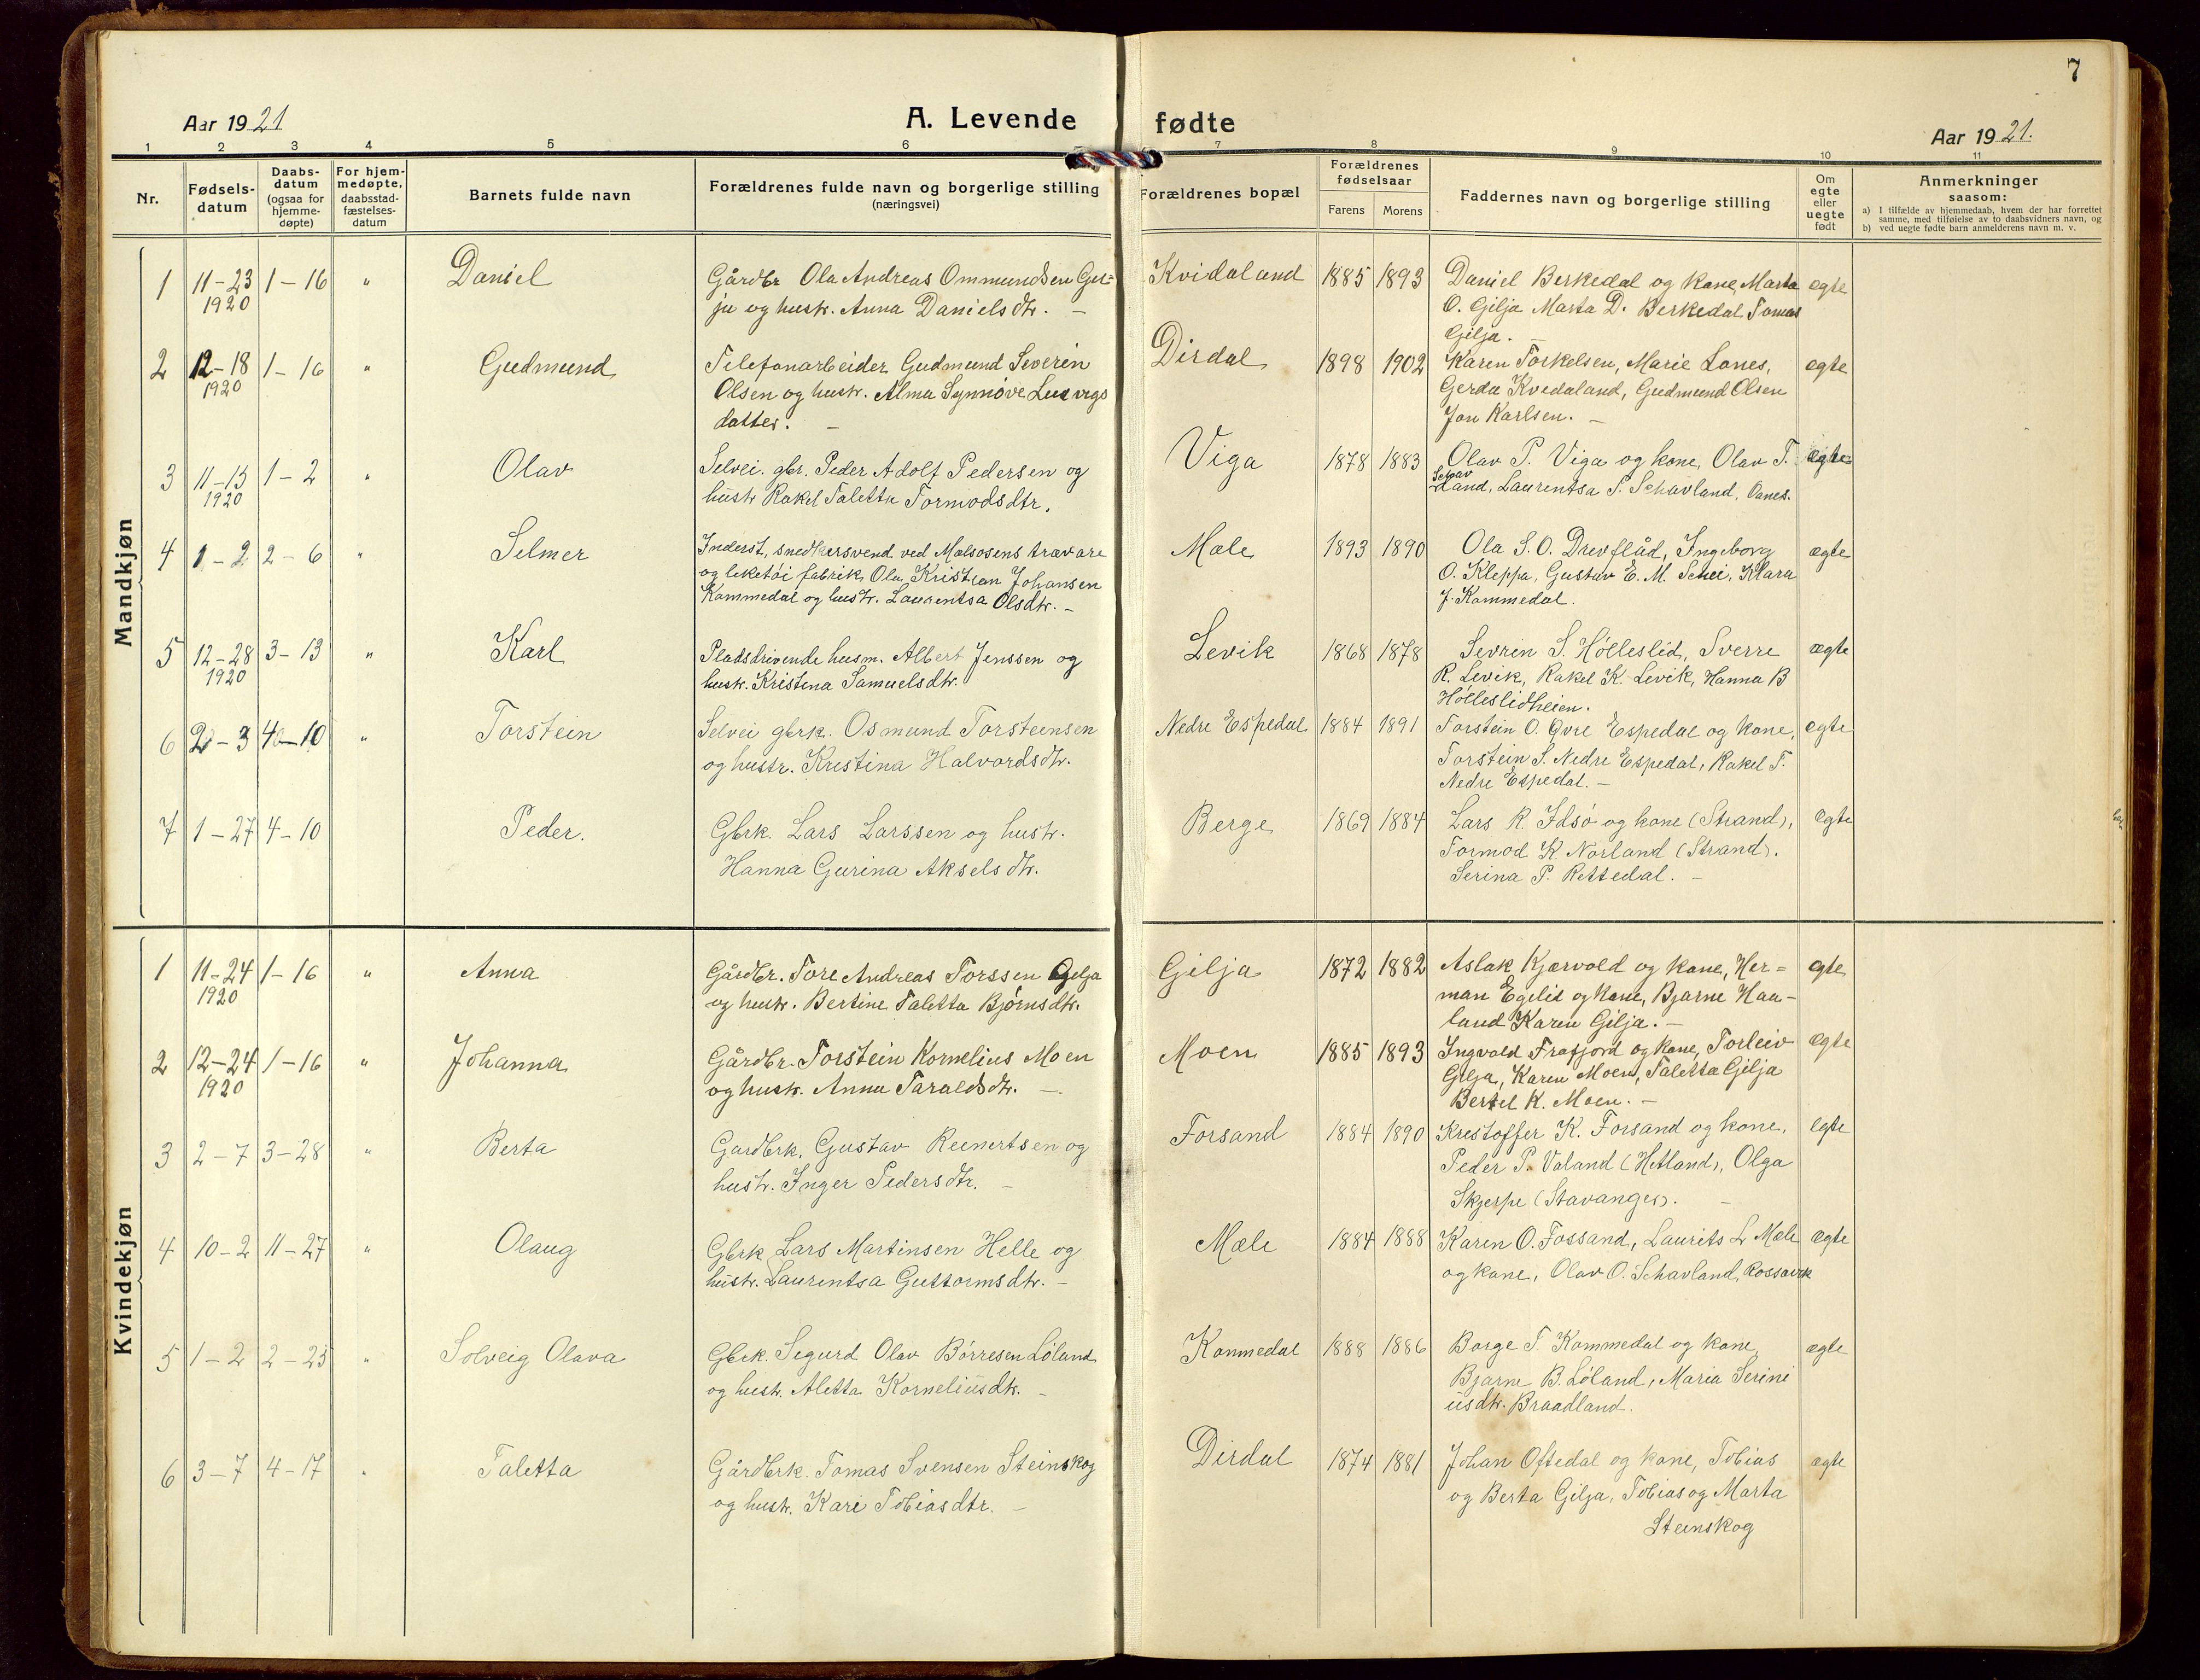 7
Aar 1921
A. Levende
fødte
Aar 1921.
1 2 3 4 5 6 7 8 9 10 11
Nr.
Fødsels-
datum
Daabs-
datum
(ogsaa for
hjemme-
døpte)
For hjem-
medøpte,
daabsstad-
fæstelses-
datum
Barnets fulde navn
Forældrenes fulde navn og borgerlige stilling
(næringsvei)
Forældrenes bopæl
Forældrenes
fødselsaar
Farens Morens
Faddernes navn og borgerlige stilling
Om
egte
eller
uegte
født
Anmerkninger
saasom:
a) I tilfælde av hjemmedaab, hvem der har forrettet
samme, med tilføielse av to daabsvidners navn, og
b) ved uegte fødte barn anmelderens navn m. v.
Mandkjøn
1 11-23 1-16 " Daniel Gårdbr Ola Andreas Ommundsen Gil= Kvidaland 1885 1893 Daniel Berkedal og kone, Marta egte
1920 ja og hustr. Anna Danielsdtr. — O. Gilja Marta D. Berkedal Tomas
Gilja. —
2 12-18 1-16 " Gudmund Telefonarbeider Gudmund Severin Dirdal 1898 1902 Karen Torkelsen, Marie Lones, egte
1920 Olsen og hustr. Alma Synnøve Ludvigs Gerda Kvidaland, Gudmund Olsen
datter. — Jon Karlsen. —
3 11-13 1-2 " Olav Selvei. gbr. Peder Adolf Pedersen og Viga 1878 1883 Olav P. Viga og kone, Olav T. egte
1920 hustr Rakel Taletta Tormodsdtr. Schavland, Laurentsa S. Schavland, Oanes.
4 1-2 2-6 " Selmer Inderst, snedkersvend ved Molsosens trævare Mæle 1893 1890 Ola S. O. Drevflåd, Ingeborg ægte
og leketøi fabrik, Ola Kristian Johansen O. Kleppa, Gustav E. M. Schei, Klara
Kommedal og hustr. Laurentsa Olsdtr. — J. Kommedal.
5 12-28 3-13 " Karl Pladsdrivende husm. Albert Jenssen og Levik 1868 1878 Sevrin S. Hølleslid, Sverre ægte
1920 hustr. Kristina Samuelsdtr. R. Levik, Rakel K. Levik, Hanna B
Hølleslidheien.
6 2-3 4-10 " Torstein Selvei gbrk. Osmund Torsteinsen Nedre Espedal 1884 1891 Torstein O. Øvre Espedal og kone, egte
og hustr. Kristina Halvordsdtr. Torstein S. Nedre Espedal, Rakel T.
Nedre Espedal. —
7 1-27 4-10 Peder. Gbrk. Lars Larssen og hustr. Berge 1869 1884 Lars R. Idsø og kone (Strand), egte
Hanna Gurina Akselsdtr. Tormod K. Norland (Strand).
Serina P. Rettedal. —
Kvindekjøn
1 11-24 1-16 " Anna Gårdbr. Tore Andreas Torssen Gilja Gilja 1872 1882 Aslak Kjærvold og kone, Her= egte
1920 og hustr. Bertine Taletta Bjørnsdtr. man Egelid og kone, Bjarne Haa-
land Karen Gilja. —
2 12-24 1-16 " Johanna Gårdbr. Torstein Kornelius Moen Moen 1885 1893 Ingvald Frafjord og kone, Torleiv egte
1920 og hustr. Anna Taraldsdtr. — Gilja, Karen Moen, Taletta Gilja
Bertel K. Moen. —
3 2-7 3-28 " Berta Gardbrk. Gustav Reenertsen og Forsand 1884 1890 Krestoffer K. Forsand og kone, egte
hustr. Inger Pedersdtr. — Peder P. Valand (Hetland), Olga
Skjerpe (Stavanger). —
4 10-2 11-27 " Olaug Gbrk Lars Martinsen Helle og Mæle 1884 1888 Karen O. Fossand, Laurits L Mæle ægte
hustr. Laurentsa Guttormsdtr. — og kone, Olav O. Schavland, Rossavik
5 1-2 2-25 " Solveig Olava Gbrk. Segurd Olav Børresen Løland Kommedal 1888 1886 Borge T. Kommedal og kone, ægte
og hustr. Aletta Korneliusdtr. — Bjarne B. Løland, Maria Serini
usdtr. Braadland.
6 3-7 4-17 " Taletta Gårdbrk. Tomas Svensen Steinskog Dirdal 1874 1881 Johan Oftedal og kone, Tobias ægte
og hustr. Kari Tobiasdtr. — og Berta Gilja, Tobias og Marta
Steinskog